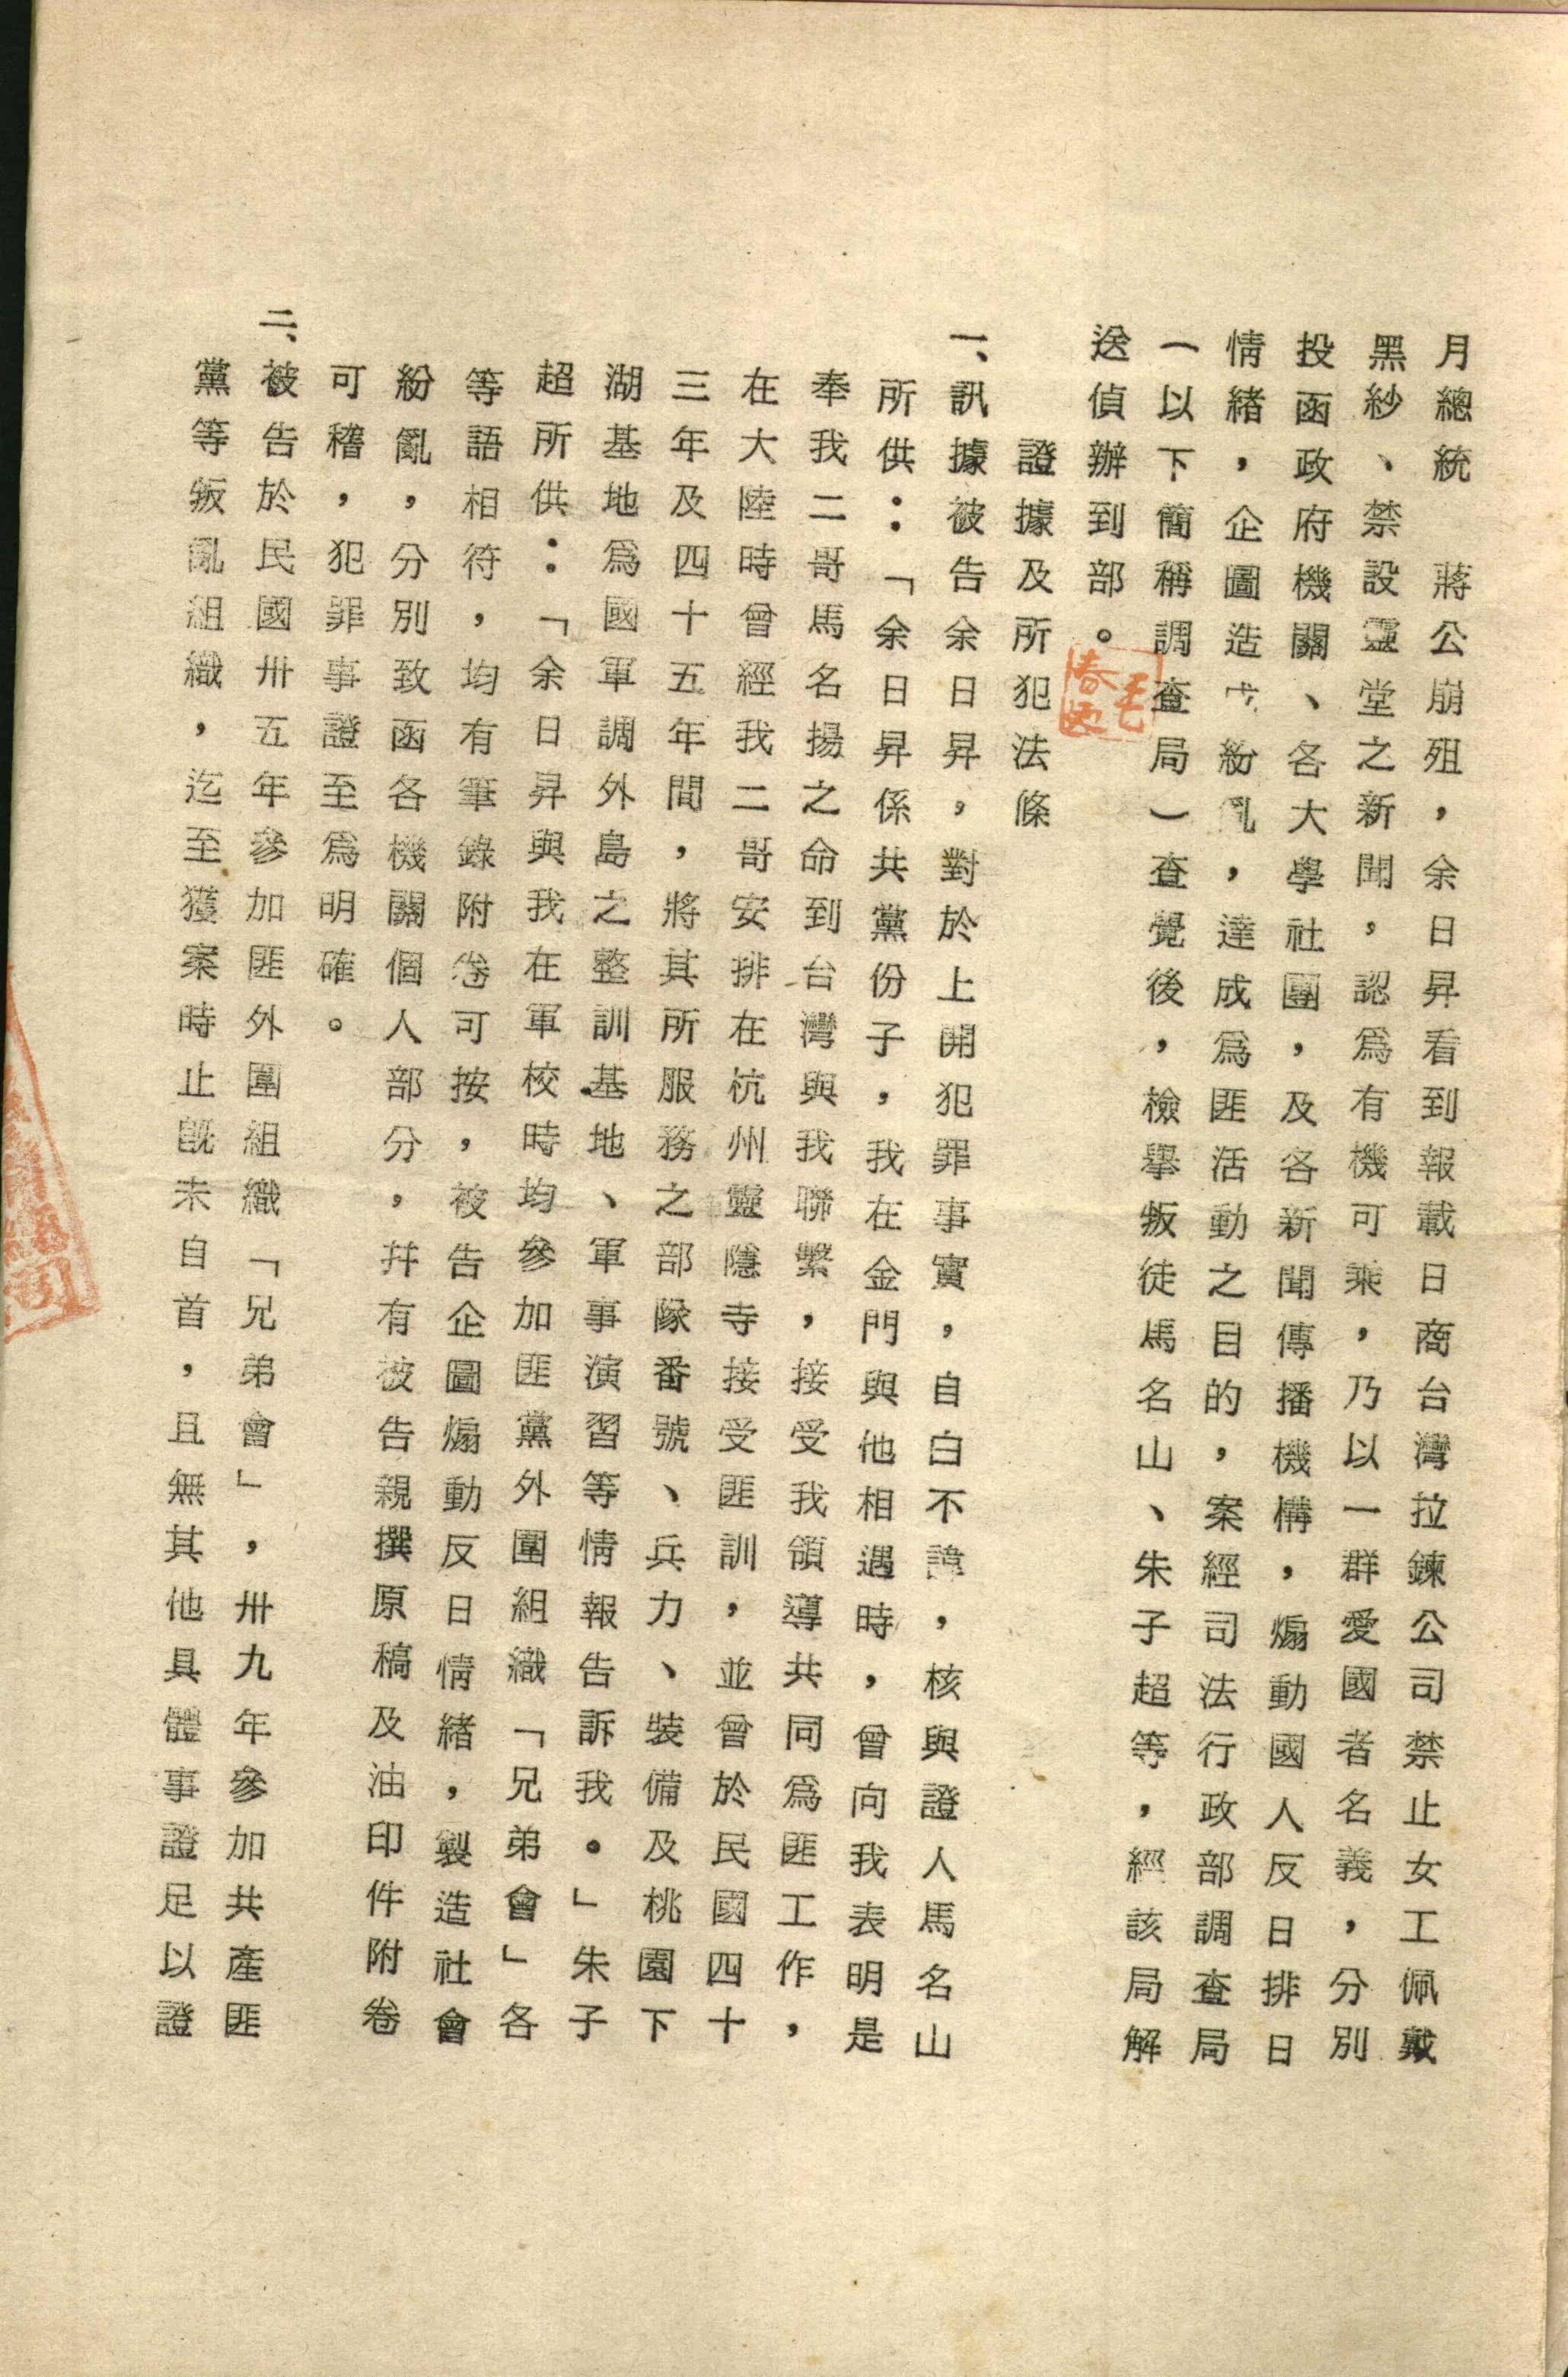 月總統　蔣公崩殂，余日昇看到報載日商台灣拉鍊公司禁止女工佩戴
黑紗、禁設靈堂之新聞，認爲有機可乘，乃以一群愛國者名義，分別
投函政府機關、各大學社團，及各新聞傳播機構，煽動國人反日排日
情緒，企圖造成紛亂，達成爲匪活動之目的，案經司法行政部調查局
（以下簡稱調查局）查覺後，檢舉叛徒馬名山、朱子超等，經該局解
送偵辦到部。
證據及所犯法條
一、訊據被告余日昇，對於上開犯罪事實，自白不諱，核與證人馬名山
所供：「余日昇係共黨份子，我在金門與他相遇時，曾向我表明是
奉我二哥馬名揚之命到台灣與我聯繫，接受我領導共同爲匪工作，
在大陸時曾經我二哥安排在杭州靈隱寺接受匪訓，並曾於民國四十
三年及四十五年間，將其所服務之部隊番號、兵力、裝備及桃園下
湖基地爲國軍調外島之整訓基地、軍事演習等情報告訴我。」朱子
超所供：「余日昇與我在軍校時均參加匪黨外圍組織「兄弟會」各
等語相符，均有筆錄附卷可按，被告企圖煽動反日情緒，製造社會
紛亂，分別致函各機關個人部分，幷有被告親撰原稿及油印件附卷
可稽，犯罪事證至爲明確。
二、被告於民國卅五年參加匪外圍組織「兄弟會」，卅九年參加共產匪
黨等叛亂組織，迄至獲案時止旣未自首，且無其他具體事證足以證
毛
春